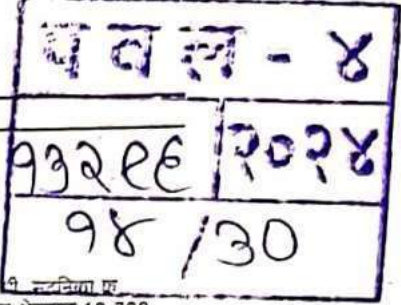 पवल - ४
१३२९६ २०२४
१४/३०